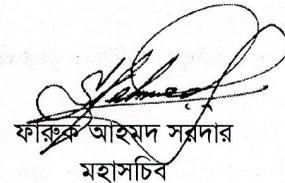 ফারুক আহমদ সরদার
মহাসচিব